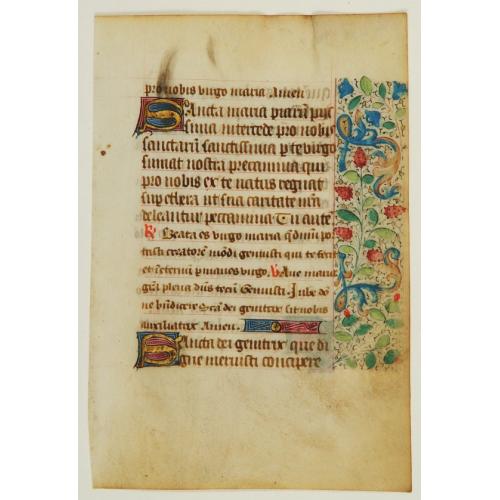 pro nobis virgo maria Amen
Sancta maria piarū piis
sima intercede pro nobis
sanctarū sanctissima p te virgo
sumat nostra precamina qui
pro nobis ex te natus regnat
sup ethera ut sua caritate nr̄a
deleantur peccamina Tu aute
R Beata es virgo maria q dn̄m por
tasti creatorē mōdi genuisti qui te fecit
et ī eternū pmanes virgo. V Aue maria
gr̄a plena dn̄s tecū Genuisti. Iube do
ne bn̄dicere Scā dei genitrix sit nobis
auxiliatrix Amen.
Sancta dei genitrix que di
gne meruisti concipere